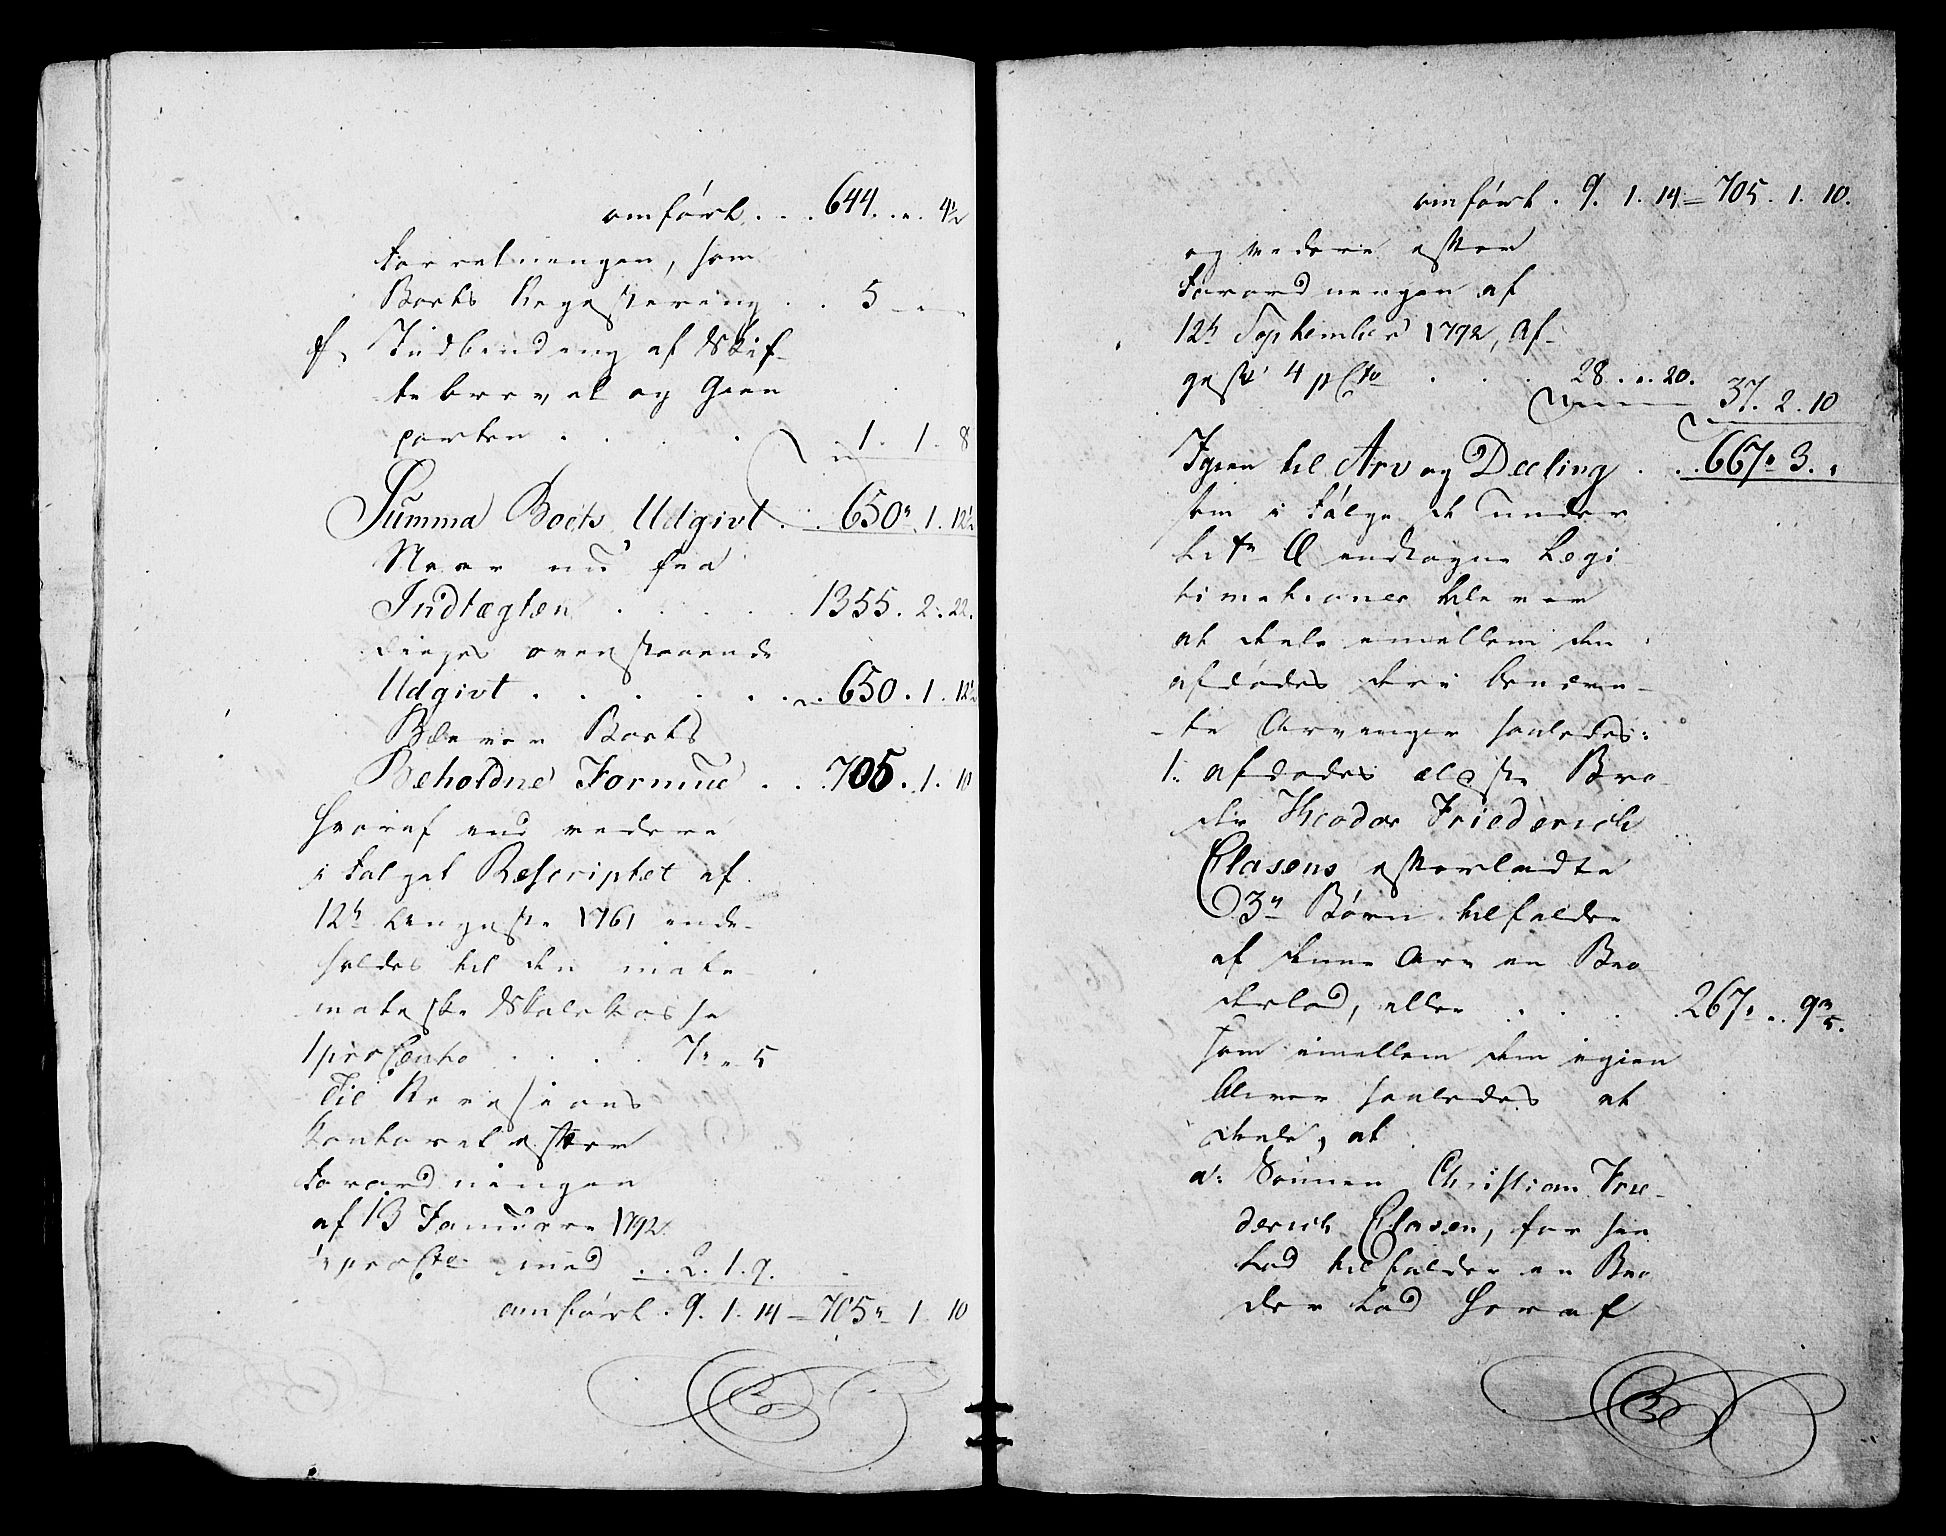 omført . . . 644. „. 4½
Forretningen, som
Boets Registering . . 5 „ „
f, Indbinding af Skif-
tebrevet og Gien
parten . . . . 1. 1. 8
Summa Boets Udgivt . . . 650„ 1. 12½
Naar nu fra
Indtægten . . . . . 1355. 2. 22.
drages ovenstaaende
Udgivt . . . . . . . 650. 1. 12½
Bliver Boets
Beholdne Formue . . . 705. 1. 10
hvoraf end videre
i Følge Rescriptet af
12te Auguste 1761 inde-
holdes til den mate-
matiske Skolekasse
1 pro Cento . . . . 7„ „ 5
Til Revisions
Kontoret efter
Forordningen
af 13 Januarii 1792
pro Cto med . . 2. 1. 9.
omført . 9. 1. 14 — 705„ 1. 10
omført . 9. 1. 14 — 705. 1. 10.
og videre efter
Forordningen af
12te September 1792, Af-
gift 4 p Cto . . . 28. „. 20.
37. 2. 10
Igien til Arv og Deeling . . . 667„ 3. „
som i Følge de under
Litr. indtagne Legi
timationer bliver
at dele imellem den
afdødes der benævn-
te Arvinger saaledes:
1. afdødes ælste Bro-
der Theodor Friederich
Clasens efterladte
3„ Børn tilfalder
af denne Arv en Bro
derlod, eller . . . . 267„ „. 9 3/5.
som imellem dem igien
bliver saaledes at
dele, at
a. Sönnen Christian Frie-
derich Clasen, for sin
Lod tilfalder en Bro
der Lod heraf